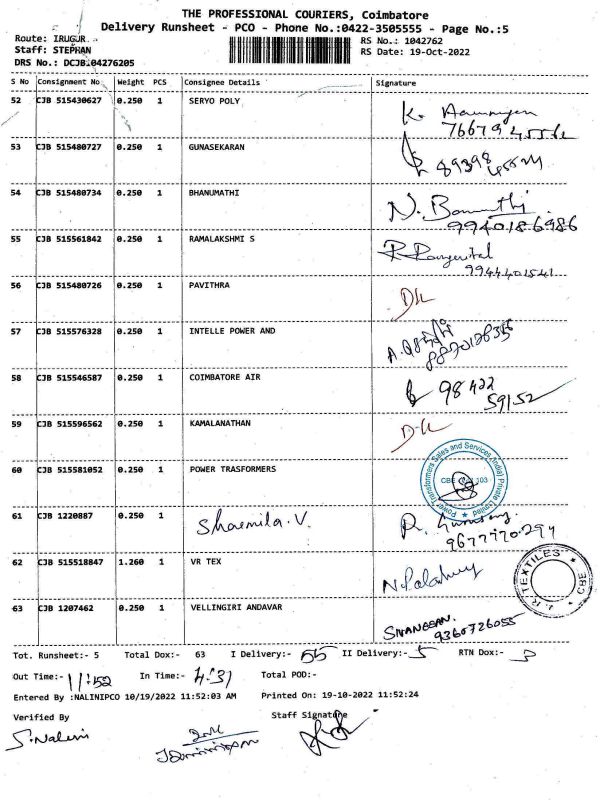 THE PROFESSIONAL COURIERS, Coimbatore
Delivery Runsheet - PCO - Phone No.:0422-3505555 - Page No.:5
Route: IRUGUR
Staff: STEPHAN
DRS No.: DCJB:04276205
RS No.: 1042762
RS Date: 19-Oct-2022
S No Consignment No Weight PCS Consignee Details Signature
52 CJB 515430627 0.250 1 SERYO POLY K.
53 CJB 515480727 0.250 1 GUNASEKARAN
54 CJB 515480734 0.250 1 BHANUMATHI N. 9940186986
55 CJB 515561842 0.250 1 RAMALAKSHMI S 9944401541
56 CJB 515480726 0.250 1 PAVITHRA
57 CJB 515576328 0.250 1 INTELLE POWER AND
58 CJB 515546587 0.250 1 COIMBATORE AIR 98422 59152
59 CJB 515596562 0.250 1 KAMALANATHAN
60 CJB 515581052 0.250 1 POWER TRASFORMERS Power Transformers Sales and Services (India) Private Limited
61 CJB 1220887 0.250 1 Sharmila.V. R. 9677770294
62 CJB 515518847 1.260 1 VR TEX TEXTILES CBE
63 CJB 1207462 0.250 1 VELLINGIRI ANDAVAR 9360726055
Tot. Runsheet:- 5 Total Dox:- 63 I Delivery:- 55 II Delivery:- 5 RTN Dox:- 3
Out Time:- 11:52 In Time:- 4:31 Total POD:-
Entered By :NALINIPCO 10/19/2022 11:52:03 AM Printed On: 19-10-2022 11:52:24
Verified By Staff Signature
S.Nalini